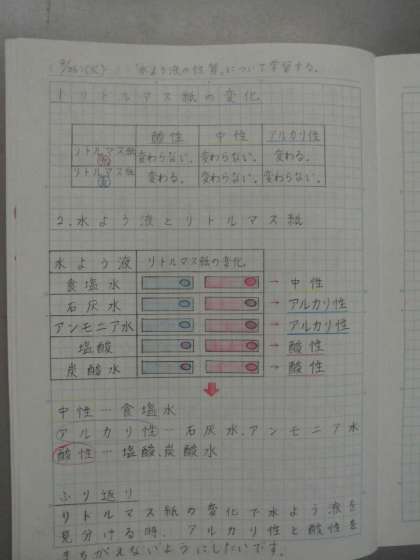 「水よう液の性質」について学習する。
1.リトルマス紙の変化
酸性 中性 アルカリ性
リトルマス紙 赤 変わらない。 変わらない。 変わる。
リトルマス紙 青 変わる。 変わらない。 変わらない。
2.水よう液とリトルマス紙
水よう液 リトルマス紙の変化
食塩水 → 中性
石灰水 → アルカリ性
アンモニア水 → アルカリ性
塩酸 → 酸性
炭酸水 → 酸性
中性ー食塩水
アルカリ性ー石灰水、アンモニア水
酸性ー塩酸、炭酸水
ふり返り
リトルマス紙の変化で水よう液を
見分ける時、アルカリ性と酸性を
まちがえないようにしたいです。